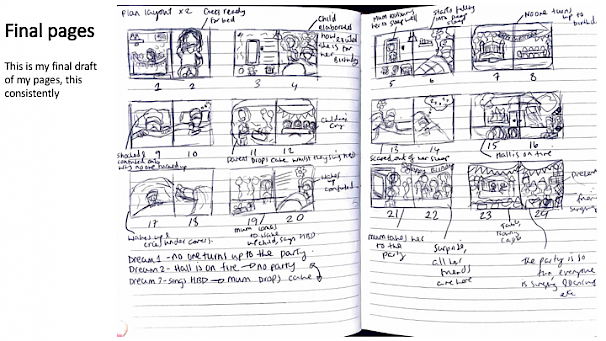 Final pages
This is my final draft
of my pages, this
consistently
Plan layout x 2
Gets ready
for bed
Child
elaborates
how excited
she is for
her Birthday
1
2
3
4
Shocked &
confused only
why no one turned up
9
10
11
12
Parent Drops cake whilst they sing HBD
Children
Cry
17
18
19
20
Wakes up &
cries under covers.
Mum comes
to wake
up child, says HBD
Wakes up
confused
Dream 1 - no one turns up to the party.
Dream 2 - Hall is on fire → no party
Dream 3 - sings HBD → mum Drops cake
Mum
her to sleep well
starts falling
into
sleep
No one turns
up to
birthd
5
6
7
8
13
14
15
16
Scared out of her sleep
Hall is on fire
21
22
23
24
Mum takes her
to the
party
Surprise,
all her
friends
are here
The party is so
fun, everyone
is singing Dancing
etc